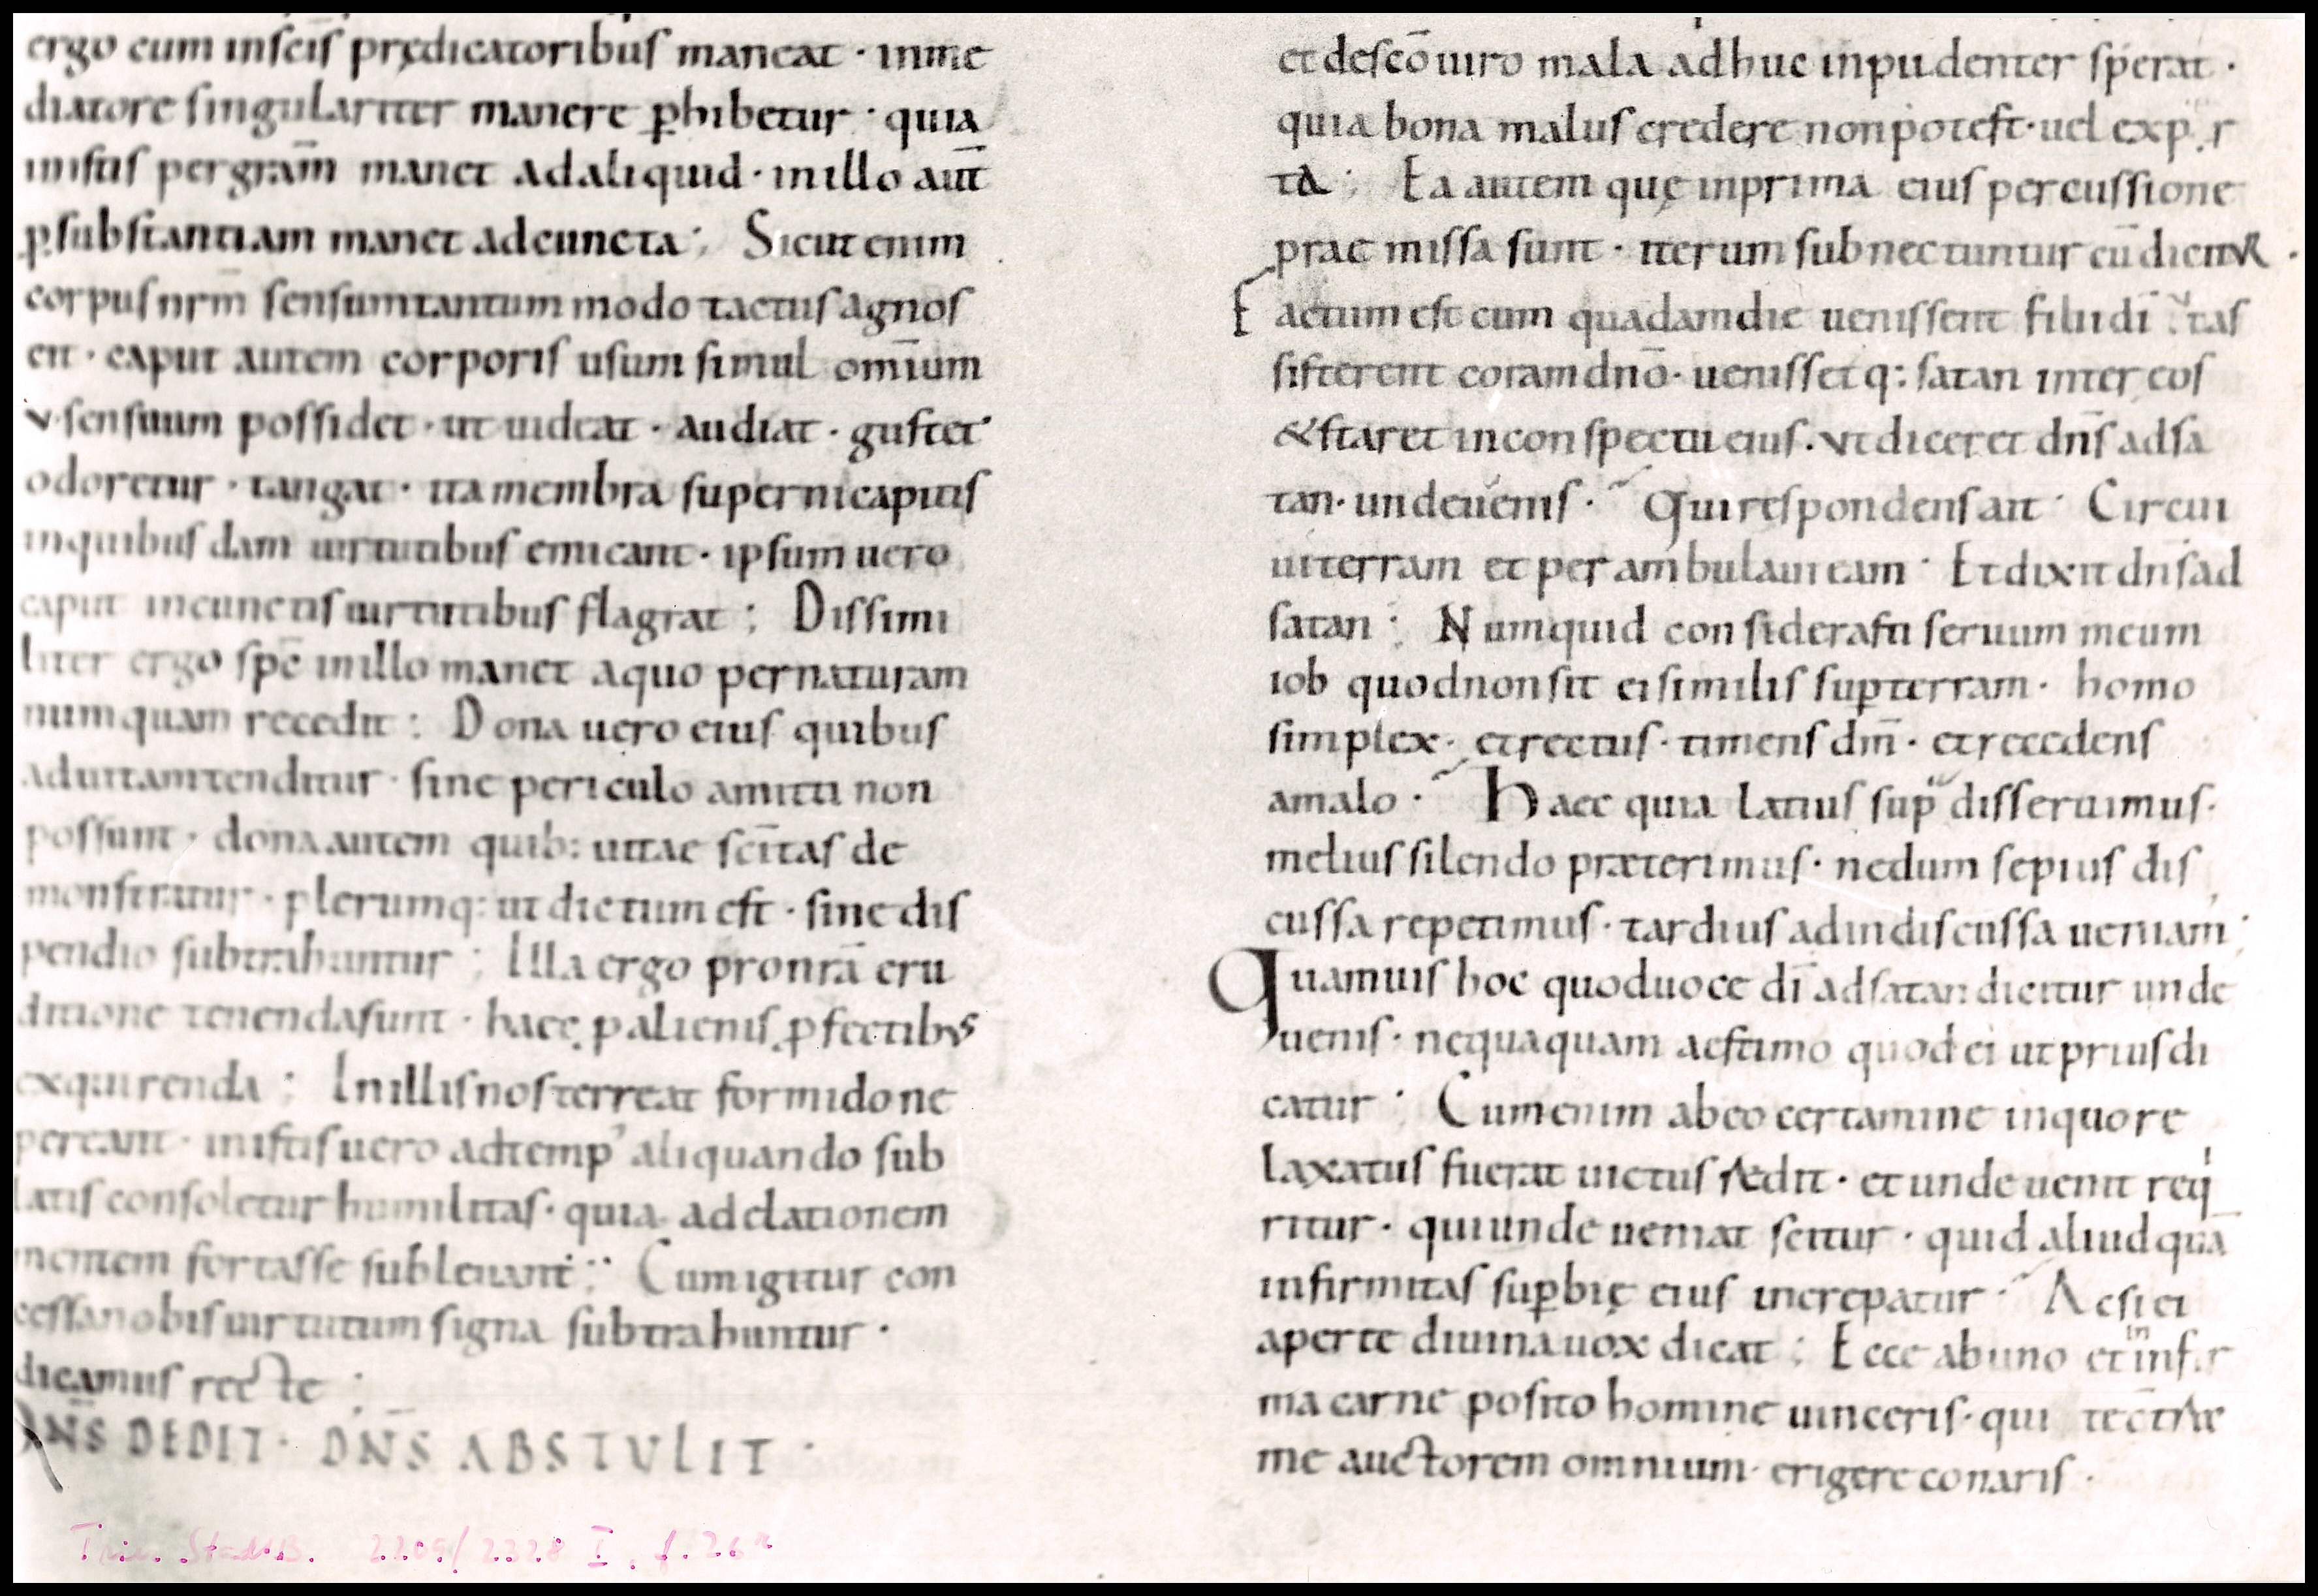 ergo cum inscīs prędicatoribus maneat · inme
diatore singulariter manere ꝑhibetur · quia
inistis per gram̄ manet adaliquid · inillo aut̄
ꝑ substantiam manet adcuncta ; Sicut enim
corpus nrm̄ sensum tantummodo tactus agnos
cit · caput autem corporis usum simul om̄ium
v · sensuum possidet · ut uideat · audiat · gustet
odoretur · tangat · ita membra supernicapitis
inquibusdam uirtutibus emicant · ipsum uero
caput incunctis uirtutibus flagrat ; Dissimi
liter ergo spē inillo manet aquo per naturam
numquam recedit ; Dona uero eius quibus
aduitam tenditur · sine periculo amitti non
possunt · dona autem quib: uitae scītas de
monstratur · plerumq: ut dictum est · sine dis
pendio subtrahuntur ; Illa ergo pronrā eru
ditione tenenda sunt · haec ꝑ alienis ꝓfectibus
exquirenda ; Inillis nos terreat formido ne
pereant · inistis uero adtemp' aliquando sub
latis consoletur humilitas · quia adelationem
mentem fortasse subleuant ; Cum igitur con
cessa nobis uirtutum signa subtrahuntur ·
dicamus recte ;
DN̄S DEDIT · DN̄S ABSTULIT ·
et de scō uiro mala adhuc inpudenter sperat ·
quia bona malus credere non potest · uel exp r
ta ; Ea autem quę inprima eius percussione
praemissa sunt · iterum subnectuntur cū dicitur ·
Factum est cum quadam die uenissent filii dī tas
sisterent coram dnō · uenisset q: satan inter eos
& staret inconspectu eius . ut diceret dn̄s adsa
tan · unde uenis · Qui respondens ait · Circui
ui terram et perambulaui eam · Et dixit dn̄s ad
satan ; Numquid considerasti seruum meum
iob quod non sit ei similis suꝑ terram · homo
simplex · et rectus · timens dm̄ · et recedens
amalo · Haec quia latius sup disseruimus ·
melius silendo præterimus · ne dum sepius dis
cussa repetimus · tardius ad indiscussa ueniam ;
Quamuis hoc quod uoce dī adsatan dicitur unde
uenis · nequaquam aestimo quod ei ut prius di
catur ; Cum enim ab eo certamine inquo re
laxatus fuerat uictus redit · et unde uenit req
ritur · qui unde ueniat scitur · quid aliud quā
infirmitas suꝑbię eius increpatur · Ac si ei
aperte diuina uox dicat ; Ecce ab uno et in inf r
ma carne posito homine uinceris · qui te cōtra
me auctorem omnium · erigere conaris ·
2209/2328 I, f. 26r